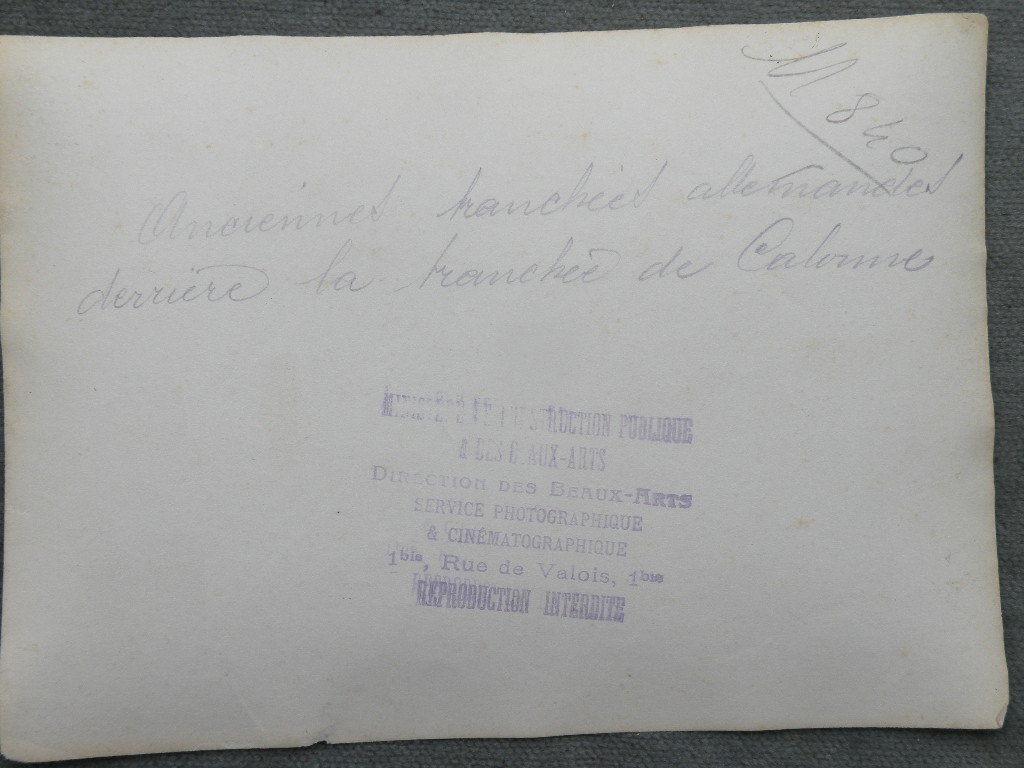 M 840
Anciennes tranchées allemandes
derrière la tranchée de Calonne
MINISTÈRE DE L'INSTRUCTION PUBLIQUE
& DES BEAUX-ARTS
DIRECTION DES BEAUX-ARTS
SERVICE PHOTOGRAPHIQUE
& CINÉMATOGRAPHIQUE
1bis, Rue de Valois, 1bis
REPRODUCTION INTERDITE